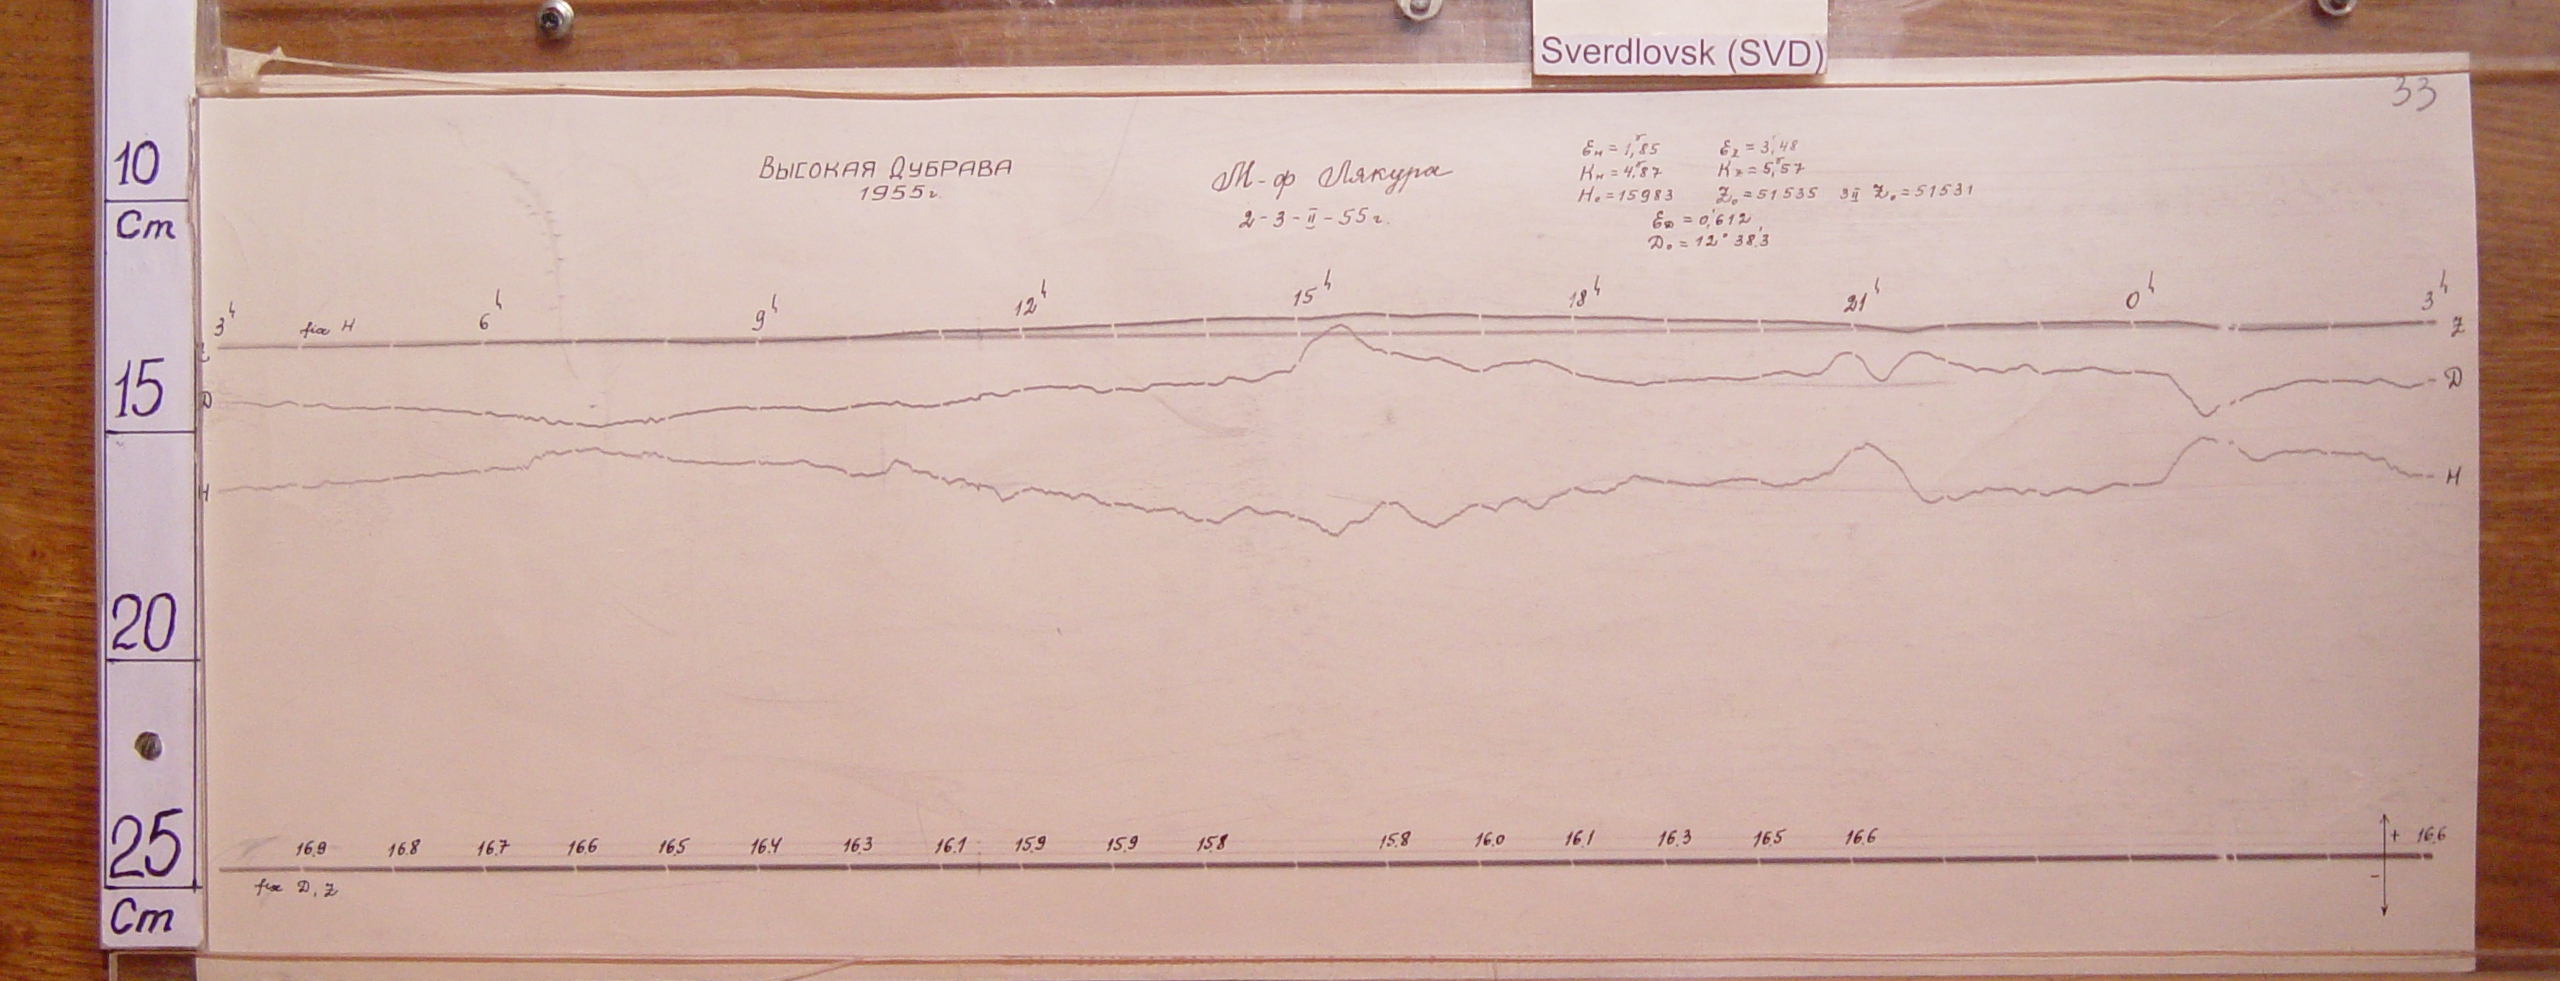 Sverdlovsk (SVD)
33
10
Cm
15
20
25
Cm
ВЫСОКАЯ ДУБРАВА
1955г.
М-ф Лякура
2-3-II-55г.
Ен = 1,85 Ez = 3,48
Кн = 4,87 Kz = 5,57
Н₀ = 15983 Z₀ = 51535 3II Z₀ = 51531
ED = 0,612
D₀ = 12° 38,3
3h fix H 6h 9h 12h 15h 18h 21h 0h 3h
Z
D D
H H
16.9 16.8 16.7 16.6 16.5 16.4 16.3 16.1 15.9 15.9 15.8 15.8 16.0 16.1 16.3 16.5 16.6 + 16.6
fix D, Z -